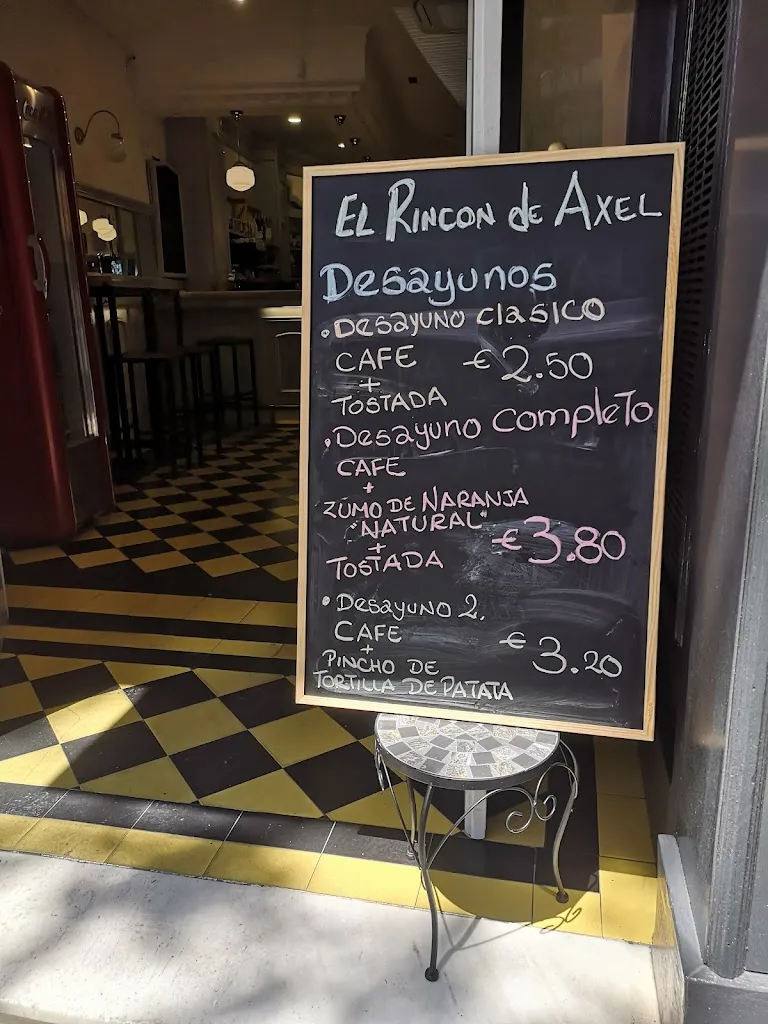 EL RINCON de AXEL
Desayunos
• Desayuno clasico
CAFE € 2.50
+
TOSTADA
• Desayuno completo
CAFE
+
ZUMO DE NARANJA
"NATURAL"
+ € 3.80
TOSTADA
• Desayuno 2.
CAFE € 3.20
+
PINCHO DE
TORTILLA DE PATATA